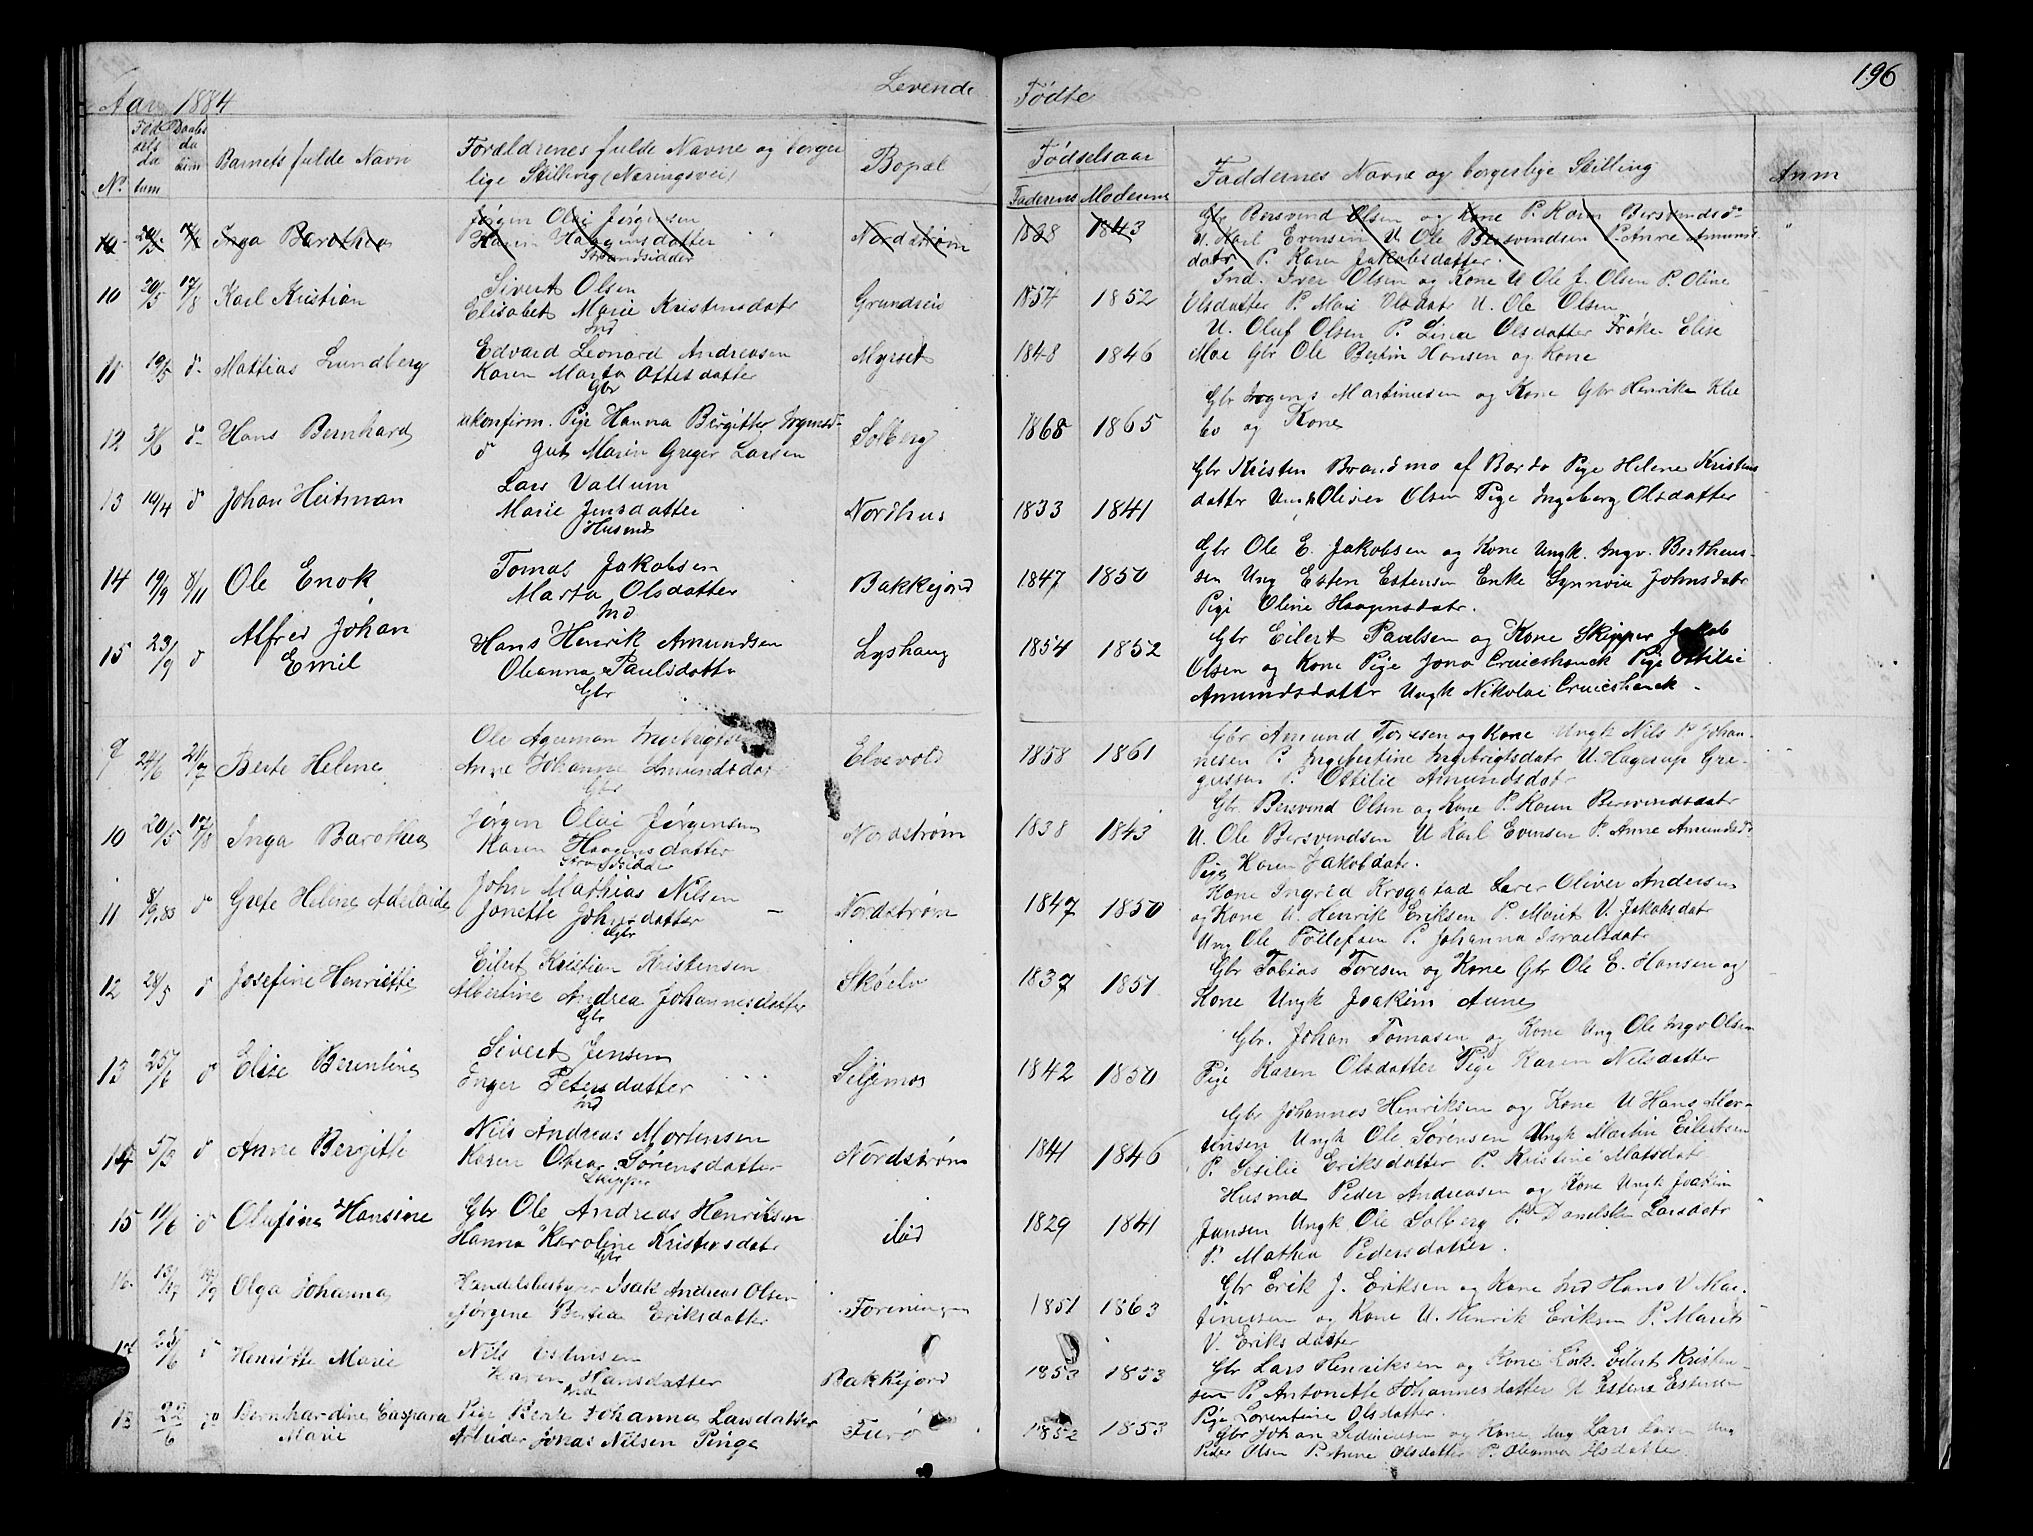 Aar 1884
Levende
Fødte
196
No.
Fødselsdatum
Daabsdatum
Barnets fulde Navn
Forældrenes fulde Navne og borger
lige Stilling (Næringsvei)
Bopæl
Fødselsaar
Faderens
Moderens
Faddernes Navne og borgerlige Stilling
Anm
10 20/5 Inga Barothea
Jørgen Olai Jørgensen
Karen Haagensdatter
Strandsidder
Nordstrøm
1838 1843
Gbr Bersvend Olsen og Kone P. Karen Bersvendsd-
U. Karl Evensen U Ole Bersvendsen P. Anne Amunds
datr P. Karen Jakobsdatter.
10 20/5 17/8 Karl Kristian
Sivert Olsen
Elisabet Marie Kristensdatr
Ind
Grundreis
1854 1852
Ind. Iver Olsen og Kone U Ole J. Olsen P. Oline
Olsdatter P. Mari Olsdatr U. Ole Olsen
11 19/5 d- Mattias Lundberg
Edvard Leonard Andreasen
Karen Marta Ottesdatter
Gbr
Myrset
1848 1846
U. Oluf Olsen, P. Lina Olsdatter Frøken Elise
Moe Gbr Ole Bertin Hansen og Kone
12 3/6 d- Hans Bernhard
ukonfirm. Pige Hanna Birgitte
d gut Marin Greger Larsen
Solberg
1868 1865
Gbr Martinusen og Kone Gbr Henrik Kile
bo og Kone
13 19/4 d Johan Heitman
Lars Vallum
Marie Jensdatter
Husmd
Nordhus
1833 1841
Gbr Kristen Brandmo af Bardo Pige Helene Kristens
datter Ungk Oliver Olsen Pige Ingeborg Olsdatter
14 19/9 8/11 Ole Enok
Tomas Jakobsen
Marta Olsdatter
Ind
Bakkejord
1847 1850
Gbr Ole E. Jakobsen og Kone Ungk. Ingv. Berthens-
sen Ung Esten Estensen Enke Synnvia Johnsdatr
Pige Oline Haagensdatr.
15 23/9 d Alfred Johan
Emil
Hans Henrik Amundsen
Oleanna Paulsdatter
Gbr
Lyshaug
1854 1852
Gbr Eilert Paulsen og Kone Skipper Jakob
Olsen og Kone Pige Jona Cruicshanck Pige Ottilie
Amundsdatter Ungk Nikolai Cruicshanck.
9 24/6 Berte Helene
Ole Ageman
Anne Johanne Amundsdatr
Gbr
Elvevold
1858 1861
Gbr Amund Toresen og Kone Ungk Nils P. Johan-
nesen P. Ingebertine Ingebrigtsdatr U. Hagerup Gre-
gussen P. Ottilie Amundsdatr
10 20/5 17/8 Inga Barothea
Jørgen Olai Jørgensen
Karen Haagensdatter
Strandsidder
Nordstrøm
1838 1843
Gbr Bersvend Olsen og Kone P. Karen Bersvendsdatr
U. Ole Bersvendsen U Karl Evensen P. Anne Amundsd
Pige Karen Jakobdatr.
11 8/9 83 d Grete Helene Adelaide
John Mathias Nilsen
Jonette Johnsdatter
Gbr
Nordstrøm
1847 1850
Kone Ingrid Krogstad Lærer Oliver Andersen
og Kone U. Henrik Eriksen P. Marit V. Jakobsdatr
Ung Ole Tollefsen P. Johanna Israelsdatr
12 28/5 d Josefine Henriette
Eilert Kristian Kristensen
Albertine Andrea Johannesdatter
Gbr
Skøelv
1837 1851
Gbr Tobias Toresen og Kone Gbr Ole E. Hansen og
Kone Ungk Joakim Aune
13 25/6 d Elise Berentine
Sivert Jensen
Inger Petersdatter
Ind
Seljemo
1842 1850
Gbr. Johan Tomasen og Kone Ung Ole Ingv Olsen
Pige Karen Olsdatter Pige Karen Nilsdatter
14 5/3 d Anne Bergitte
Nils Andreas Mortensen
Karen Olea Sørensdatter
Skipper
Nordstrøm
1841 1846
Gbr Johannes Henriksen og Kone U Hans Mor-
tensen Ungk Ole Sørensen Ungk Martin Eilertsen
P. Sesilie Eriksdatter P. Kristine Matsdatr
15 11/6 d Olufine Hansine
Gbr Ole Andreas Henriksen
Hanna Karoline Kristensdatr
Gbr
1829 1841
Husmd Peder Andreasen og Kone Ungk Joakim
Jensen Ungk Ole Solberg P. Larsdatr
P. Mathea Pedersdatter.
16 Olga Johanna
Handelsbestyrer Isak Andreas Olsen
Jørgine Bertea Eriksdatter
Foreningen
1851 1863
Gbr Erik J. Eriksen og Kone Ind Hans V Mar-
tinussen og Kone U. Henrik Eriksen P. Marit
V. Eriksdatter
17 d Henriette Marie
Nils Estensen
Karen Hansdatter
Ind
Bakkejord
1853 1853
Gbr Lars Henriksen og Kone Eilert Kristen-
sen P. Antonette Johannesdatter U Esten Estensen
Pige Lorentine Olsdatter.
18 22/6 Bernhardine Caspara
Marie
Pige Berte Johanna Larsdatter
Arbeider Jonas Nilsen Pinge
Furø
1852 1853
Gbr Johan og Kone Ung Lars Larsen Ung
Peder Olsen P. Anne Olsdatter P. Oleanna Olsdatter